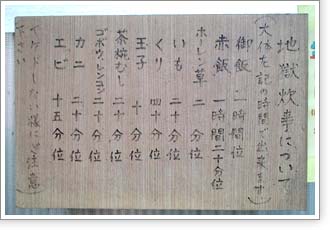 地獄炊事について
(大体左記の時間で出来ます)
御飯 一時間位
赤飯 一時間二十分位
ホーレン草 二分位
いも 二十分位
くり 四十分位
玉子 十分位
茶焼むし 二十分位
ゴボウ、ニンヂン 二十分位
カニ 二十分位
エビ 十五分位
(イケドしない様にご注意
下さい)